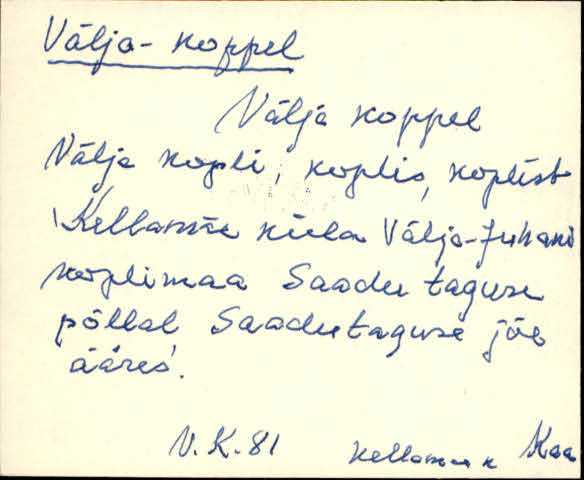 Välja-koppel
Välja koppel
Välja kopli, koplis, koplist
Kellamäe küla Välja-Juhani
koplimaa Saadu taguse
põllal Saadutaguse jõe
ääres.
V.K. 81 Kellamäe k Kaa